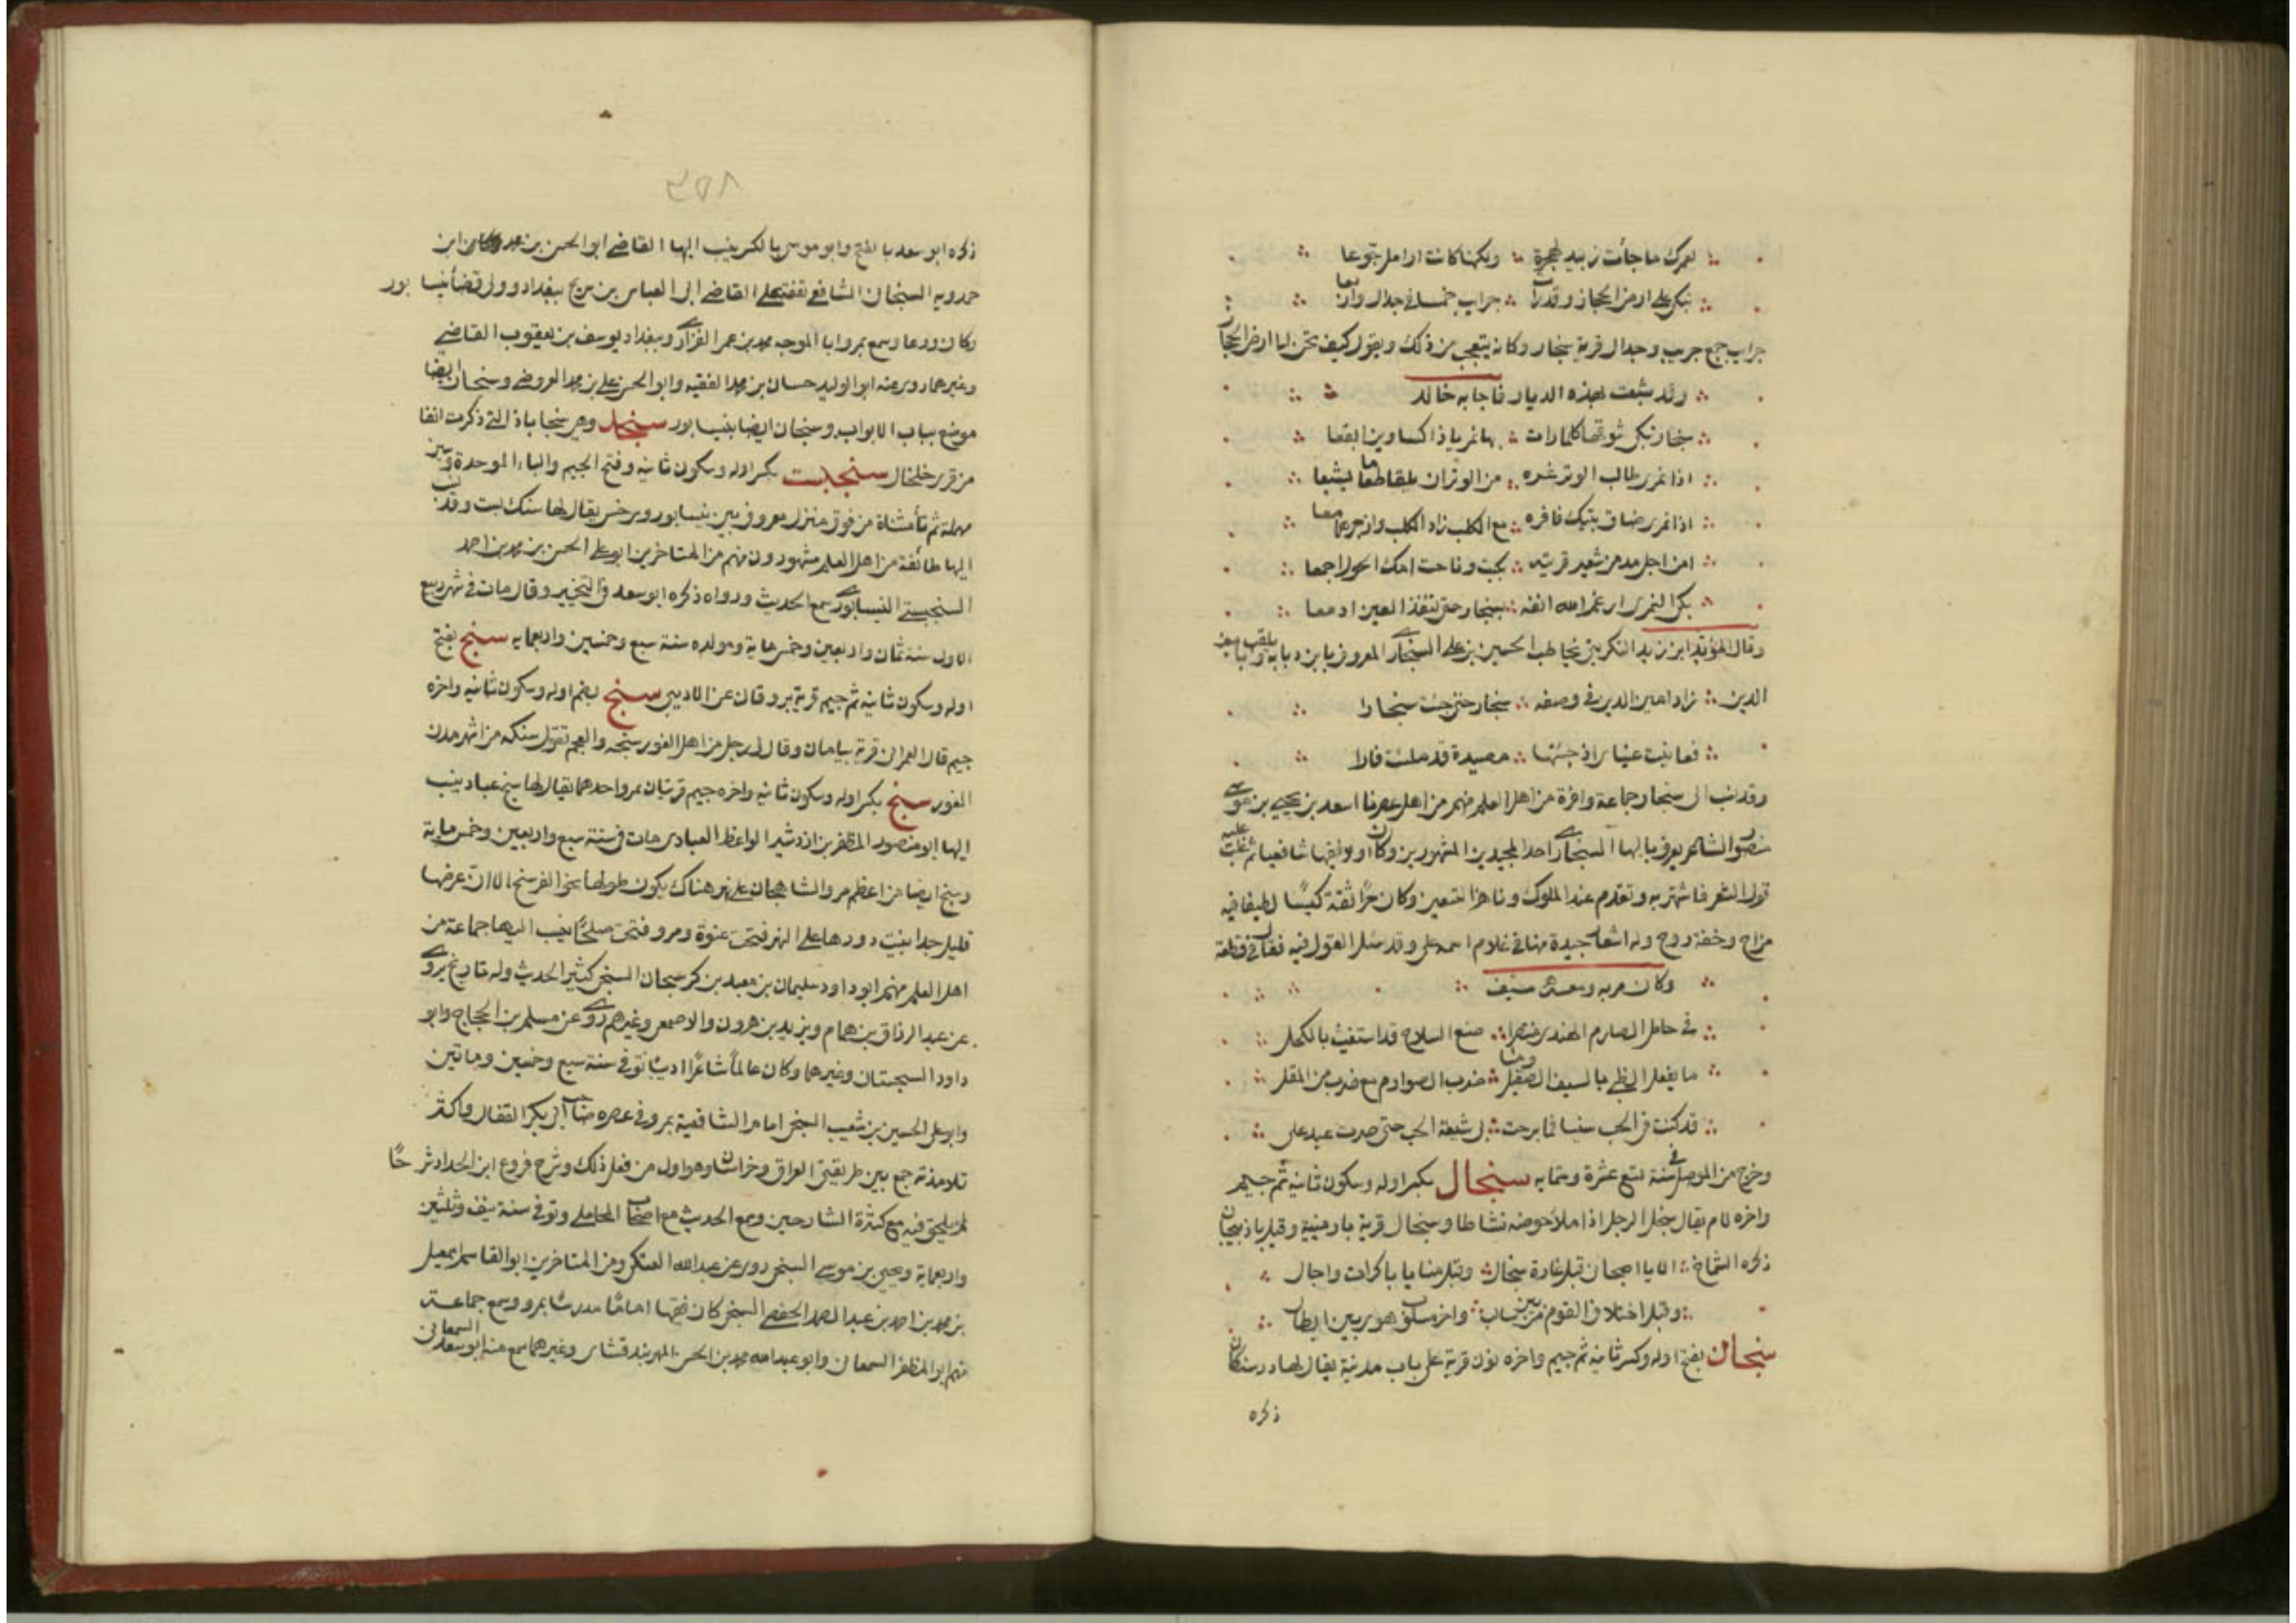 لعمرك ما جأت زبيد لهجرة ولكنها كانت ارامل جوعا
تبكى على ارض الحجاز وقد رأت جرايب خمسا فى جدال واربعا
جرايب جمع جريب وجدال قرية سنجار وكانه يتعجب من ذلك ويقول كيف تحن الى ارض الحجاز
وقد شبعت بهذه الديار فاجابه خالد
سنجار تبكى سوقها كلما رات بها نمريا ذا كساوين ايفعا
اذا نمرى طالب الوتر غره من الوتران يلقا طعاما فيشبعا
اذا نمرى ضاق بيتك فاقره مع الكلب زاد الكلب وازجرهما معا
امن اجل مد من شعير قريته بكيت وناحت امك الحول اجمعا
بكى النمرى ارغم الله انفه بسنجار حتى تنفذ العين ادمعا
وقال المؤيد ابن زيد التكريتى يخاطب الحسين بن على السنجارى المعروف بابن دبابه ويلقب بامين
الدين زاد امين الدين فى وصفه سنجار حتى جئت سنجارا
فعاينت عيناى اذ جئتها مصيدة قد ملئت فارا
وقد نسب الى سنجار جماعة وافرة من اهل العلم منهم من اهل عصرنا اسعد بن يحيى بن موسى
منصور الشاعر يعرف بالبها السنجارى احد المجيدين المشهورين وكان اولا فقيها شافعيا ثم غلب عليه
قول الشعر فاشتهر به وتقدم عند الملوك وناهز التسعين وكان حرا ثقة كيسا لطيفا فيه
مزاح وخفة روح وله اشعار جيدة منها فى غلام اسمه على وقد سئل القول فيه فقال فى قطعة
وكان مربه ومعه سيف
فى حامل الصارم الهندى منتصرا ضع السلاح قد استغنيت بالكحل
ما يفعل الظبى بالسيف الصقيل وما ضرب الصوارم مع ضرب من المقل
قد كنت فى الحب سنيا فما برحت بى شيعة الحب حتى صرت عبد على
وخرج من الموصل فى سنة تسع عشرة وستمايه سنجال بكسر اوله وسكون ثانيه ثم جيم
واخره لام يقال سنجل الرجل اذا ملأ حوضه نشاطا وسنجال قرية بارمينية وقيل باذربيجان
ذكره الشماخ الا يا اصبحان قبل غارة سنجال وقبل منايا باكرات واجال
وقبل اختلاف القوم من بين سالب واخر مسلوب هوى بين ابطال
سنجان بفتح اوله وكسر ثانيه ثم جيم واخره نون قرية على باب مدينة يقال لها درسنكان
ذكره
٣٥٨
ذكره ابو سعد بالفتح وابو موسى بالكسر ينسب اليها القاضى ابو الحسن بن محمد ابن
حمدويه السنجانى الشافعى تفقه على القاضى ابى العباس بن سريج ببغداد وولى قضأ نيسابور
وكان ورعا وسمع بمرو ابا الموجه محمد بن عمر الفزارى وببغداد يوسف بن يعقوب القاضى
وغيرهما روى عنه ابو الوليد حسان بن محمد الفقيه وابو الحسن على بن محمد العروضى وسنجان ايضا
موضع بباب الابواب وسنجان ايضا بنيسابور سنجبد وهى سنجاباذ التى ذكرت انفا
من قرى خلخال سنجبست بكسر اوله وسكون ثانيه وفتح الجيم والباء الموحدة وسين
مهملة ثم تأ مثناة من فوق منزل معروف بين نيسابور وسرخس يقال لها سنك بست وقد نسب
اليها طائفة من اهل العلم مشهورون منهم من المتاخرين ابو على الحسن بن محمد بن احمد
السنجبستى النيسابورى سمع الحديث ورواه ذكره ابو سعد فى التخبير وقال مات فى شهر ربيع
الاول سنة ثمان واربعين وخمس ماية ومولده سنة سبع وخمسين واربعمايه سنج بفتح
اوله وسكون ثانيه ثم جيم قرية بروقان عن الاديبى سنج بضم اوله وسكون ثانيه واخره
جيم قال العمرانى قرية بباميان وقال لى رجل من اهل الغور سنجه والعجم تقول سنكه من اشهر مدن
الغور سنج بكسر اوله وسكون ثانيه واخره جيم قريتان بمرو احدهما يقال لها سنج عباد ينسب
اليها ابو منصور المظفر بن اردشير الواعظ العبادى مات فى سنة سبع واربعين وخمس ماية
وسنج ايضا من اعظم مرو الشاهجان على نهر هناك يكون طولها نحو الفرسخ الا ان عرضها
قليل جدا بنيت دورها على النهر فتحت عنوة ومرو فتحت صلحا ينسب اليها جماعة من
اهل العلم منهم ابو داود سليمان بن معبد بن كرسجان السنجى كثير الحديث وله تاريخ يروى
عن عبد الرزاق بن همام ويزيد بن هرون والاصمعى وغيرهم روى عن مسلم بن الحجاج وابو
داود السجستانى وغيرهما وكان عالما شاعرا اديبا توفى سنة سبع وخمسين وماتين
وابو على الحسين بن شعيب السنجى امام الشافعية بمرو فى عصره صاحب ابى بكر القفال واكثر
تلامذته جمع بين طريقتى العراق وخراسان وهو اول من فعل ذلك وشرح فروع ابن الحداد شرحا
لم يلحق فيه مع كثرة الشارحين وسمع الحديث مع اصحاب المحاملى وتوفى سنة نيف وثلثين
واربعماية ويحيى بن موسى السنجى روى عن عبد الله العتكى ومن المتاخرين ابو القاسم اسمعيل
بن محمد بن احمد بن عبد الصمد الحفصى السنجى كان فقيها اماما مدرسا بمرو وسمع جماعة
منهم ابو المظفر السمعانى وابو عبد الله محمد بن الحسن المهربندقشاى وغيرهما سمع منه ابو سعد السمعانى